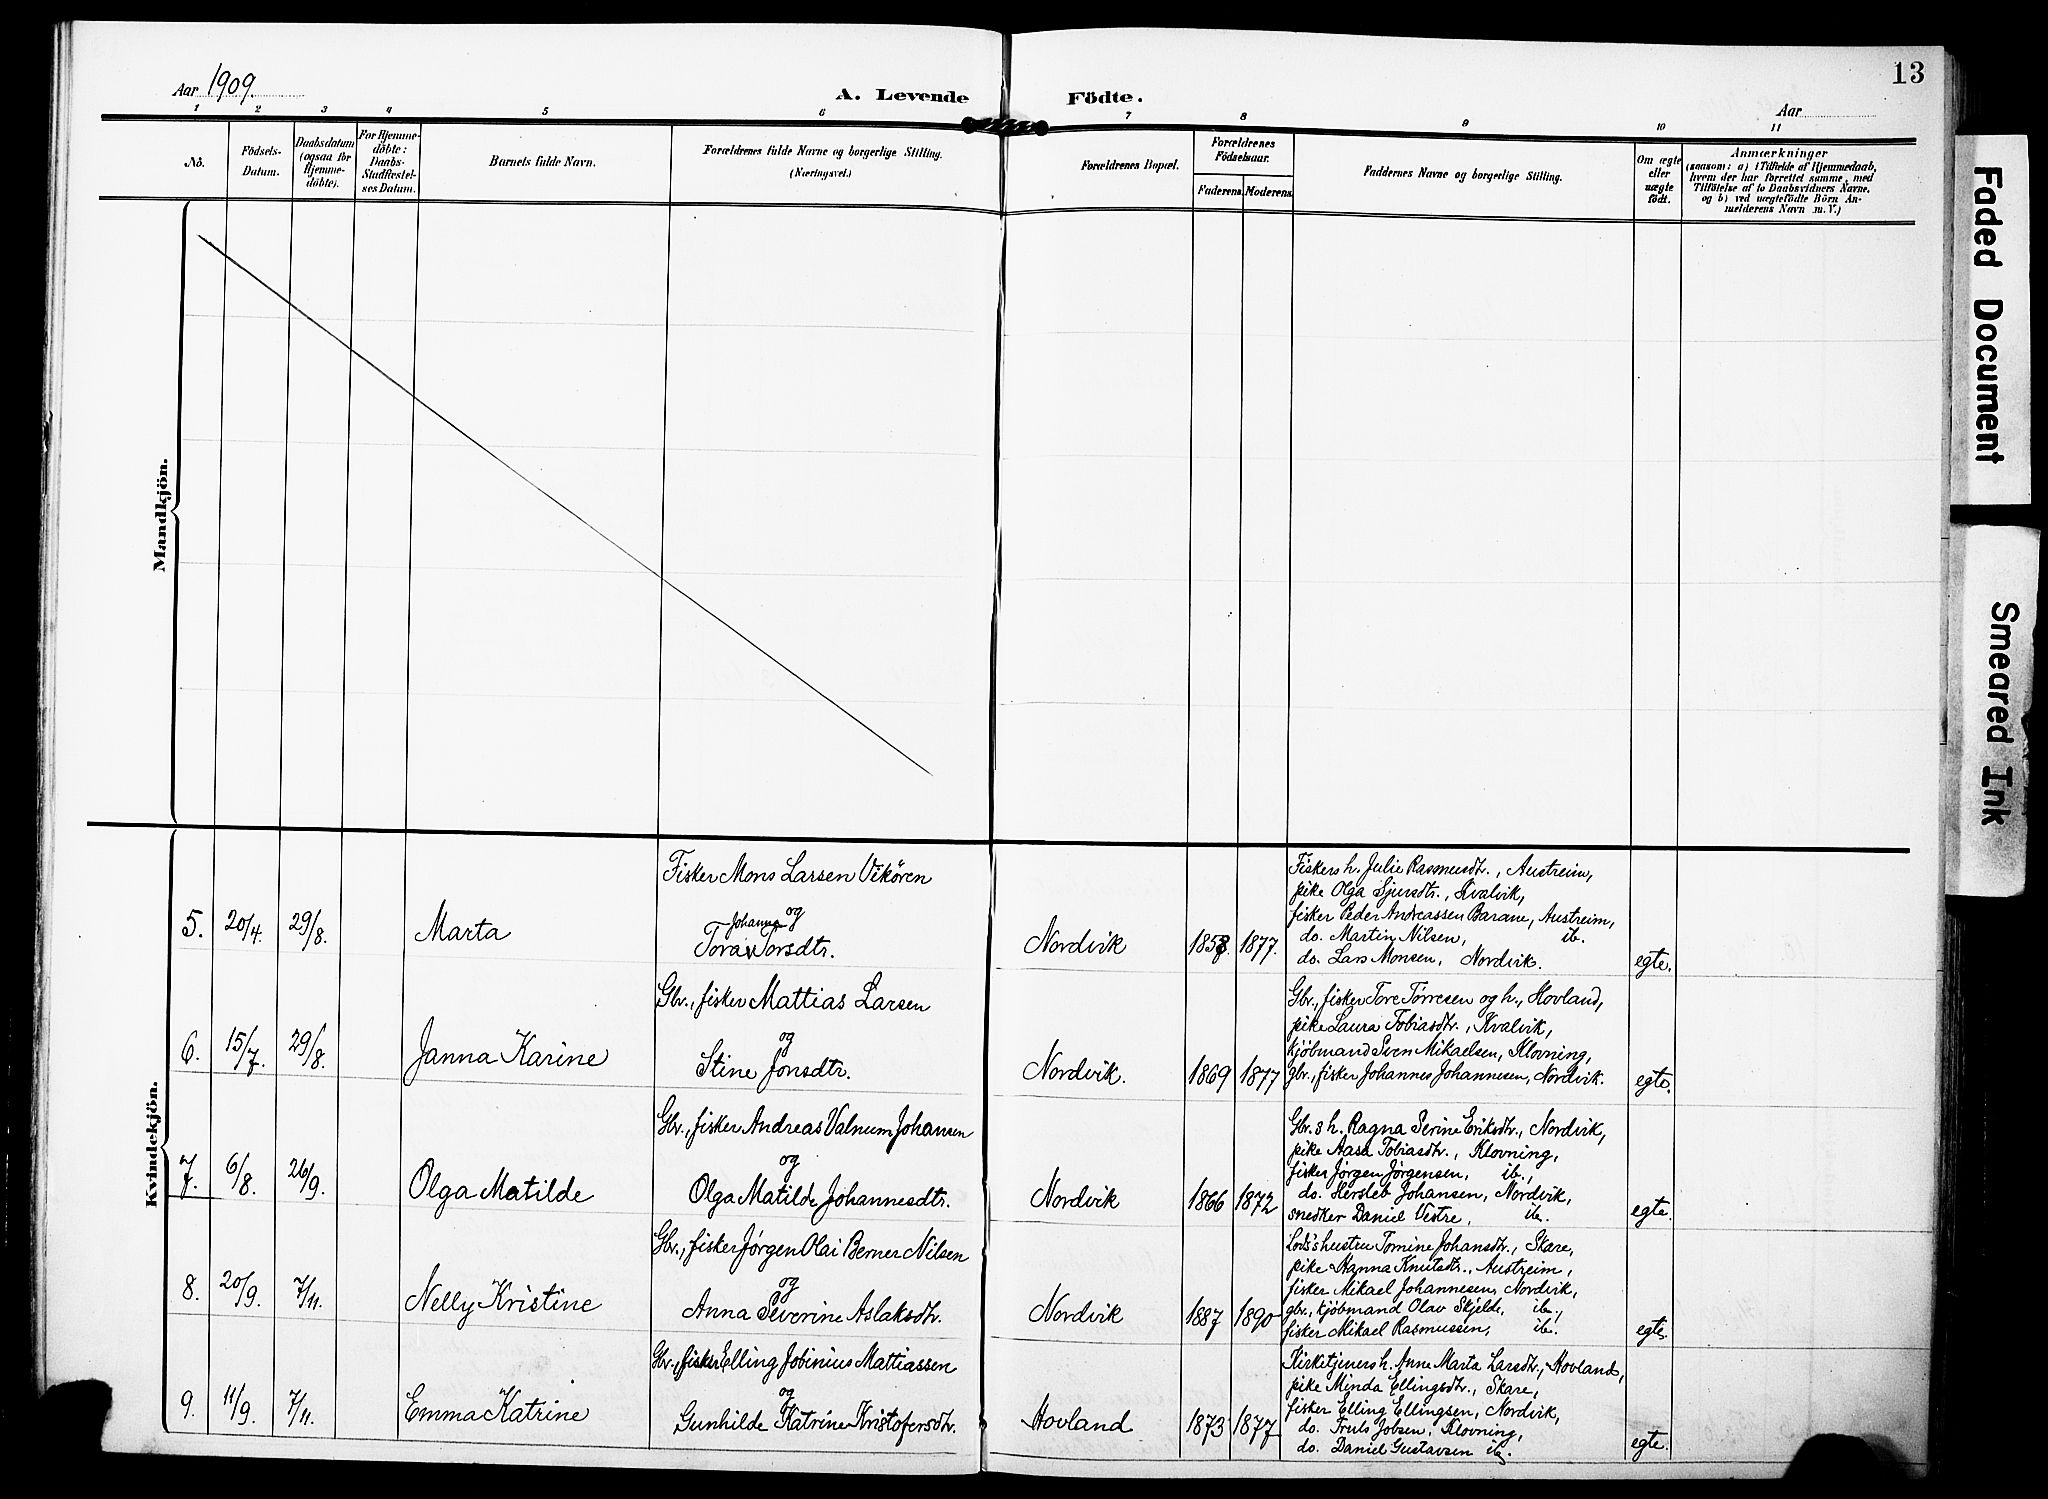 13
Aar 1909.
A. Levende Födte.
Aar
1 2 3 4 5 6 7 8 9 10 11
No.
Födsels-
Datum.
Daabsdatum
(ogsaa for
Hjemme-
döbte).
For Hjemme-
döbte:
Daabs-
Stadfæstel-
ses Datum.
Barnets fulde Navn.
Forældrenes fulde Navne og borgerlige Stilling.
(Næringsvei.)
Forældrenes Bopæl.
Forældrenes
Födselsaar.
Faderens. Moderens.
Faddernes Navne og borgerlige Stilling.
Om ægte
eller
uægte
födt.
Anmærkninger
(saasom: a) i Tilfælde af Hjemmedaab,
hvem der har forrettet samme, med
Tilföielse af to Daabsvidners Navne.
og b) ved uægtefödte Börn An-
melderens Navn m. V.)
Mandkjön.
Kvindekjön.
5. 20/4. 29/8. Marta
Fisker Mons Larsen Vikören
og
Johanna
Tora Torsdtr.
Nordvik 1858. 1877.
Fiskers h. Julie Rasmusdtr., Austreim,
pike Olga Sjursdtr., Kvalvik,
fisker Peder Andreassen Barane, Austreim,
do. Martin Nilsen, ib.
do. Lars Monsen, Nordvik.
egte.
6. 15/7. 29/8. Janna Karine
Gbr., fisker Mattias Larsen
og
Stine Jonsdtr.
Nordvik. 1869 1877
Gbr., fisker Tore Tørresen og h., Hovland,
pike Laura Tobiasdtr., Kvalvik,
kjöbmand Sven Mikaelsen, Klovning,
gbr., fisker Johannes Johannesen, Nordvik.
egte.
7. 6/8. 26/9. Olga Matilde
Gbr., fisker Andreas Valnum Johansen
og
Olga Matilde Johannesdtr.
Nordvik 1866 1872
Gbr.s h. Ragna Serine Eriksdtr., Nordvik,
pike Aasa Tobiasdtr., Klovning,
fisker Jørgen Jørgensen, ib.,
do. Hersleb Johansen, Nordvik,
snedker Daniel Vestre, ib.
egte.
8. 20/9. 7/11. Nelly Kristine
Gbr., fisker Jørgen Olai Berner Nilsen
og
Anna Severine Aslaksdtr.
Nordvik 1887 1890
Lods's hustru Tomine Johansdtr., Skare,
pike Hanna Knutsdtr., Austreim,
fisker Mikael Johannesen, Nordvik,
gbr., kjöbmand Olav Skjelde, ib.,
fisker Mikael Rasmussen, ib.
egte.
9. 11/9. 7/11. Emma Katrine
Gbr., fisker Elling Jobinius Mattiassen
og
Gunhilde Katrine Kristofersdtr.
Hovland 1873 1877
Kirketjeners h. Anne Marta Larsdtr., Hovland,
pike Minda Ellingsdtr., Skare,
fisker Elling Ellingsen, Nordvik,
do. Truls Jobsen, Klovning,
do. Daniel Gustavsen ib.
egte.
Faded Document
Smeared Ink